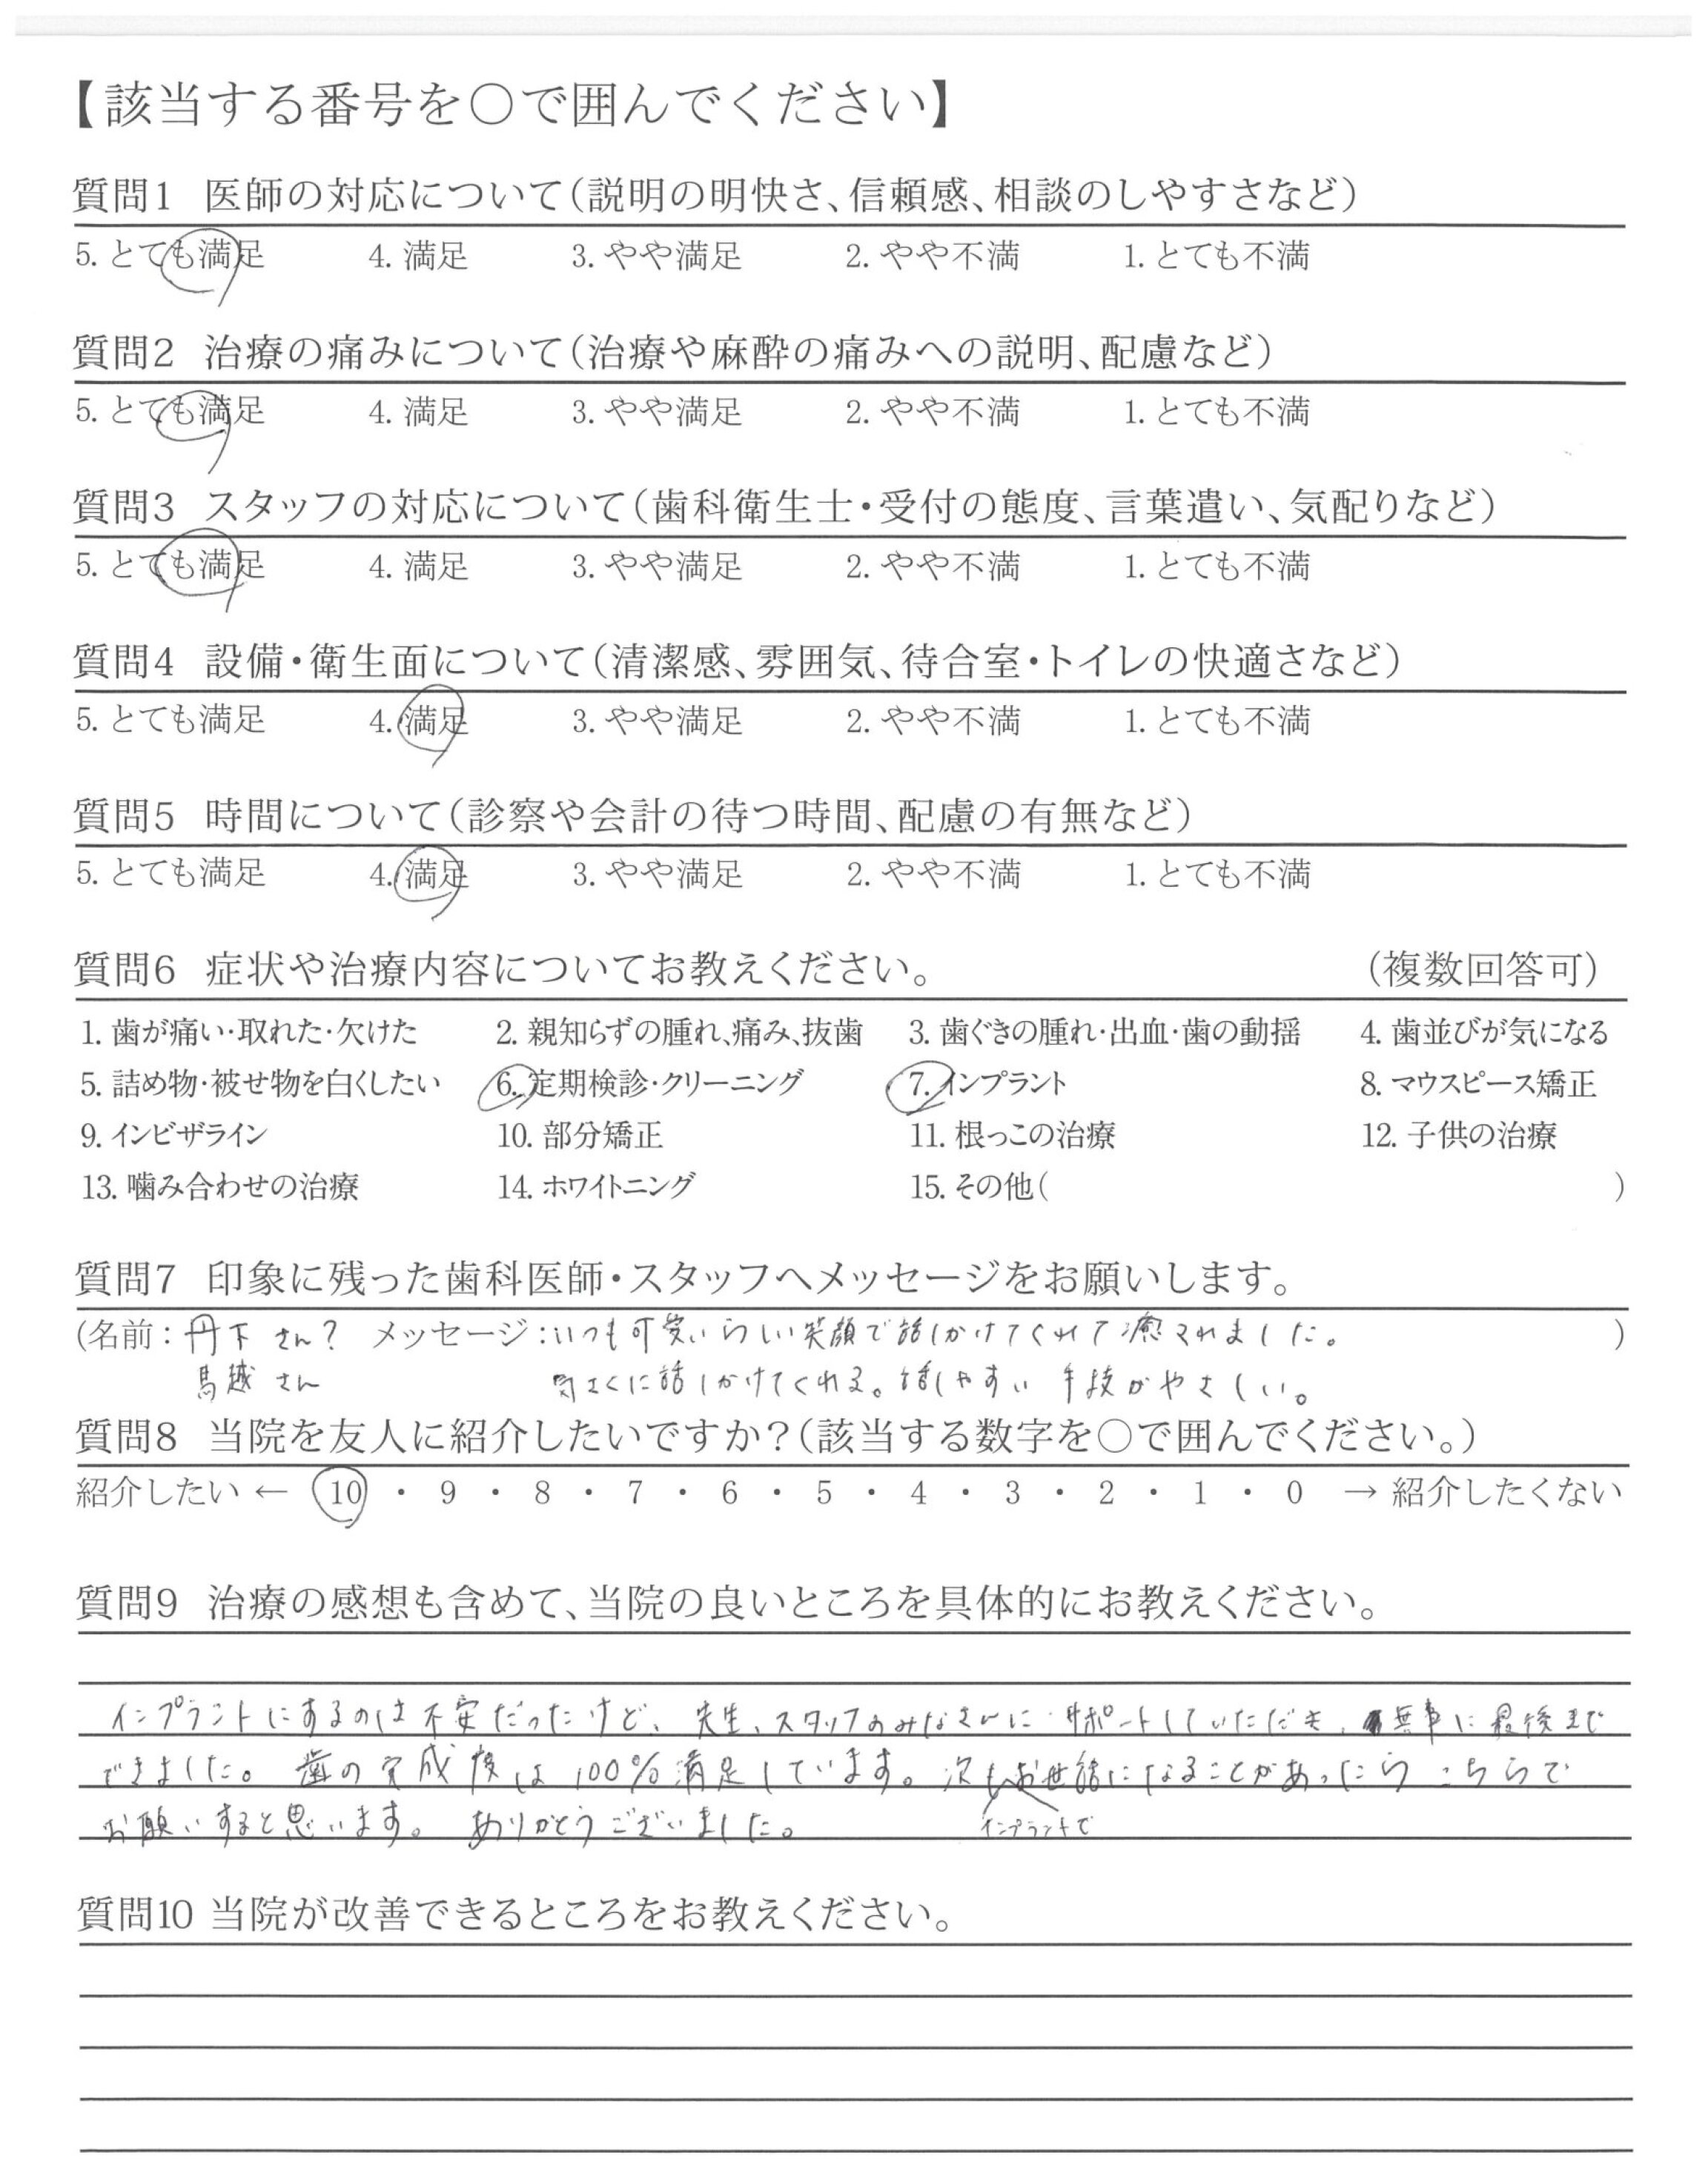 【該当する番号を○で囲んでください】
質問1 医師の対応について(説明の明快さ、信頼感、相談のしやすさなど)
5. とても満足 4. 満足 3. やや満足 2. やや不満 1. とても不満
質問2 治療の痛みについて(治療や麻酔の痛みへの説明、配慮など)
5. とても満足 4. 満足 3. やや満足 2. やや不満 1. とても不満
質問3 スタッフの対応について(歯科衛生士・受付の態度、言葉遣い、気配りなど)
5. とても満足 4. 満足 3. やや満足 2. やや不満 1. とても不満
質問4 設備・衛生面について(清潔感、雰囲気、待合室・トイレの快適さなど)
5. とても満足 4. 満足 3. やや満足 2. やや不満 1. とても不満
質問5 時間について(診察や会計の待つ時間、配慮の有無など)
5. とても満足 4. 満足 3. やや満足 2. やや不満 1. とても不満
質問6 症状や治療内容についてお教えください。 (複数回答可)
1. 歯が痛い・取れた・欠けた 2. 親知らずの腫れ、痛み、抜歯 3. 歯ぐきの腫れ・出血・歯の動揺 4. 歯並びが気になる
5. 詰め物・被せ物を白くしたい 6. 定期検診・クリーニング 7. インプラント 8. マウスピース矯正
9. インビザライン 10. 部分矯正 11. 根っこの治療 12. 子供の治療
13. 噛み合わせの治療 14. ホワイトニング 15. その他( )
質問7 印象に残った歯科医師・スタッフへメッセージをお願いします。
(名前:丹下 さん? メッセージ:いつも可愛いらしい笑顔で話しかけてくれて癒されました。 )
馬越 さん 気さくに話しかけてくれる。話しやすい 手技がやさしい。
質問8 当院を友人に紹介したいですか?(該当する数字を○で囲んでください。)
紹介したい ← 10 ・ 9 ・ 8 ・ 7 ・ 6 ・ 5 ・ 4 ・ 3 ・ 2 ・ 1 ・ 0 → 紹介したくない
質問9 治療の感想も含めて、当院の良いところを具体的にお教えください。
インプラントにするのは不安だったけど、先生、スタッフのみなさんにサポートしていただき、無事に最後まで
できました。 歯の完成度は100%満足しています。次もお世話になることがあったらこちらで
お願いすると思います。 ありがとうございました。 インプラントで
質問10 当院が改善できるところをお教えください。